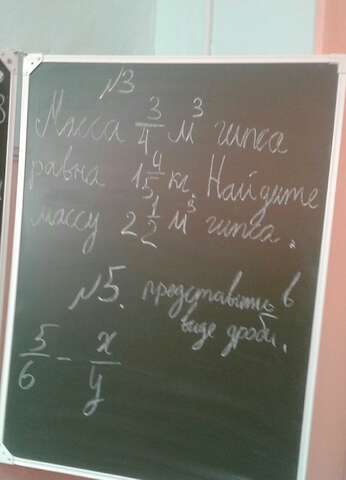 №3
Масса 3/4 м³ гипса
равна 1 4/5 кг. Найдите
массу 2 1/2 м³ гипса.
№5. представить в
виде дроби.
5/6 - x/y